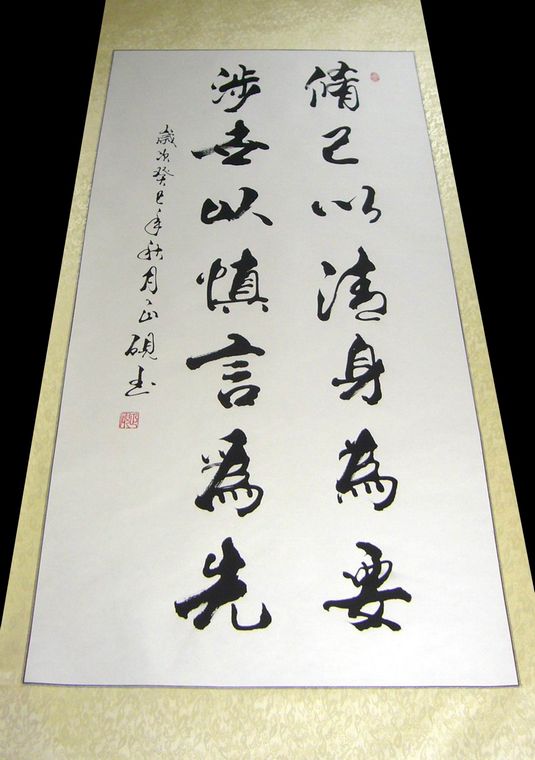 脩己以清身為要
涉世以慎言為先
歲次癸巳年秋月正硯书